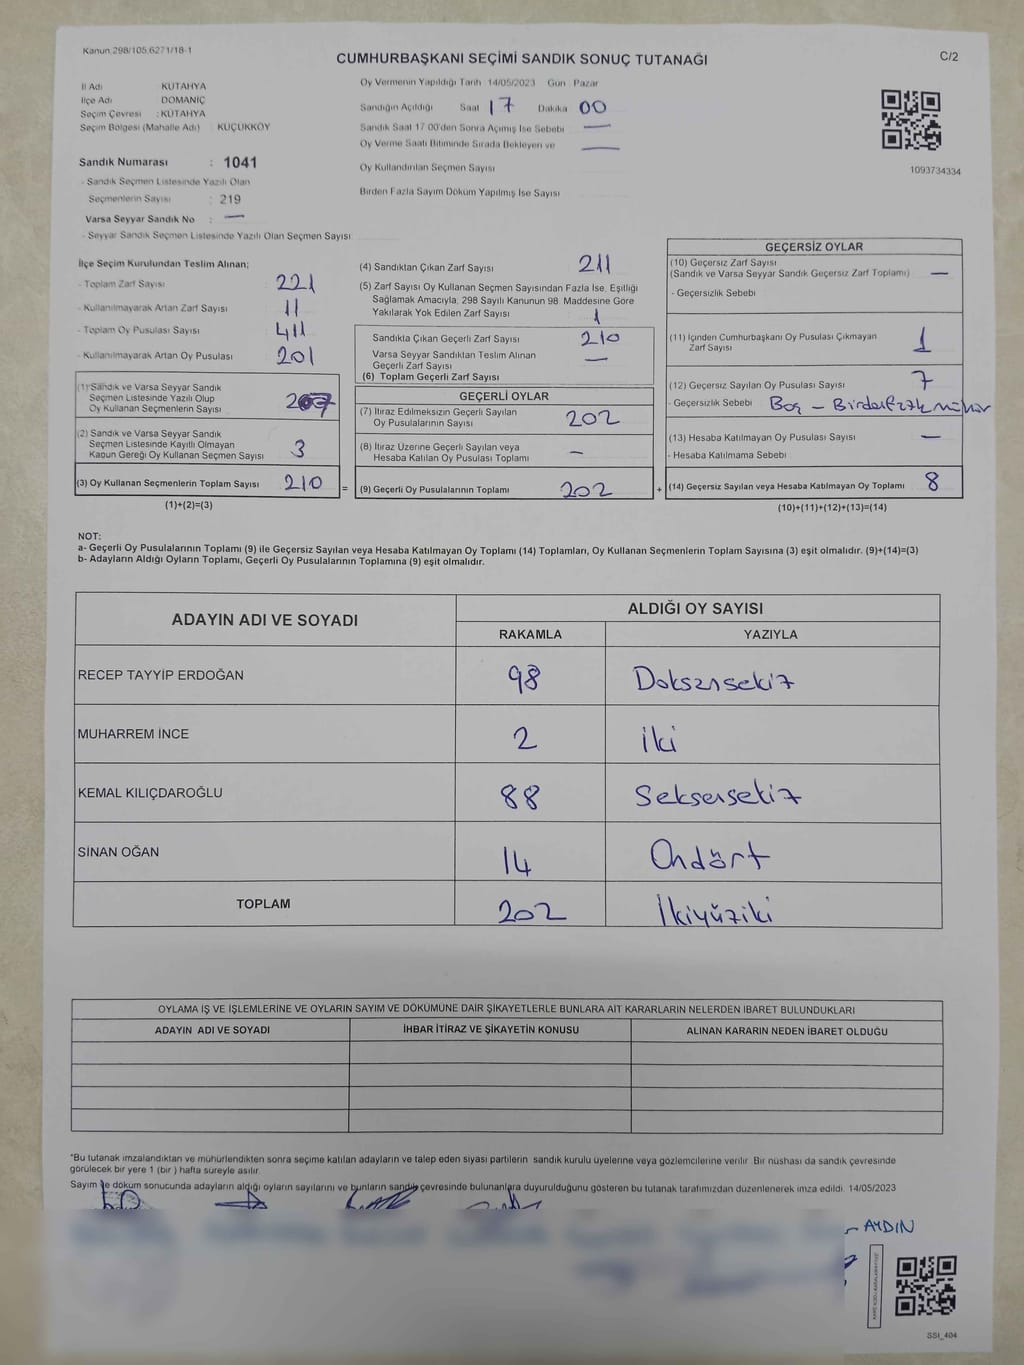 Kanun 298/105,6271/18-1
CUMHURBAŞKANI SEÇİMİ SANDIK SONUÇ TUTANAĞI
C/2
İl Adı KÜTAHYA
İlçe Adı DOMANİÇ
Seçim Çevresi : KÜTAHYA
Seçim Bölgesi (Mahalle Adı) : KÜÇÜKKÖY
Sandık Numarası : 1041
- Sandık Seçmen Listesinde Yazılı Olan
Seçmenlerin Sayısı : 219
Varsa Seyyar Sandık No : —
- Seyyar Sandık Seçmen Listesinde Yazılı Olan Seçmen Sayısı
Oy Vermenin Yapıldığı Tarih 14/05/2023 Gün : Pazar
Sandığın Açıldığı Saat 17 Dakika 00
Sandık Saat 17.00'den Sonra Açılmış İse Sebebi —
Oy Verme Saati Bitiminde Sırada Bekleyen ve —
Oy Kullandırılan Seçmen Sayısı
Birden Fazla Sayım Döküm Yapılmış İse Sayısı
1093734334
İlçe Seçim Kurulundan Teslim Alınan;
- Toplam Zarf Sayısı 221
- Kullanılmayarak Artan Zarf Sayısı 11
- Toplam Oy Pusulası Sayısı 411
- Kullanılmayarak Artan Oy Pusulası 201
(1) Sandık ve Varsa Seyyar Sandık
Seçmen Listesinde Yazılı Olup
Oy Kullanan Seçmenlerin Sayısı 207
(2) Sandık ve Varsa Seyyar Sandık
Seçmen Listesinde Kayıtlı Olmayan
Kanun Gereği Oy Kullanan Seçmen Sayısı 3
(3) Oy Kullanan Seçmenlerin Toplam Sayısı 210 =
(1)+(2)=(3)
(4) Sandıktan Çıkan Zarf Sayısı 211
(5) Zarf Sayısı Oy Kullanan Seçmen Sayısından Fazla İse, Eşitliği
Sağlamak Amacıyla; 298 Sayılı Kanunun 98. Maddesine Göre
Yakılarak Yok Edilen Zarf Sayısı 1
Sandıkta Çıkan Geçerli Zarf Sayısı 210
Varsa Seyyar Sandıktan Teslim Alınan
Geçerli Zarf Sayısı —
(6) Toplam Geçerli Zarf Sayısı
GEÇERLİ OYLAR
(7) İtiraz Edilmeksizin Geçerli Sayılan
Oy Pusulalarının Sayısı 202
(8) İtiraz Üzerine Geçerli Sayılan veya
Hesaba Katılan Oy Pusulası Toplamı —
(9) Geçerli Oy Pusulalarının Toplamı 202 +
GEÇERSİZ OYLAR
(10) Geçersiz Zarf Sayısı
(Sandık ve Varsa Seyyar Sandık Geçersiz Zarf Toplamı) —
- Geçersizlik Sebebi
(11) İçinden Cumhurbaşkanı Oy Pusulası Çıkmayan
Zarf Sayısı 1
(12) Geçersiz Sayılan Oy Pusulası Sayısı 7
- Geçersizlik Sebebi Boş -
(13) Hesaba Katılmayan Oy Pusulası Sayısı —
- Hesaba Katılmama Sebebi
(14) Geçersiz Sayılan veya Hesaba Katılmayan Oy Toplamı 8
(10)+(11)+(12)+(13)=(14)
NOT:
a- Geçerli Oy Pusulalarının Toplamı (9) ile Geçersiz Sayılan veya Hesaba Katılmayan Oy Toplamı (14) Toplamları, Oy Kullanan Seçmenlerin Toplam Sayısına (3) eşit olmalıdır. (9)+(14)=(3)
b- Adayların Aldığı Oyların Toplamı, Geçerli Oy Pusulalarının Toplamına (9) eşit olmalıdır.
ADAYIN ADI VE SOYADI ALDIĞI OY SAYISI
RAKAMLA YAZIYLA
RECEP TAYYİP ERDOĞAN 98 Doksansekiz
MUHARREM İNCE 2 İki
KEMAL KILIÇDAROĞLU 88 Seksensekiz
SİNAN OĞAN 14 Ondört
TOPLAM 202 İkiyüziki
OYLAMA İŞ VE İŞLEMLERİNE VE OYLARIN SAYIM VE DÖKÜMÜNE DAİR ŞİKAYETLERLE BUNLARA AİT KARARLARIN NELERDEN İBARET BULUNDUKLARI
ADAYIN ADI VE SOYADI İHBAR İTİRAZ VE ŞİKAYETİN KONUSU ALINAN KARARIN NEDEN İBARET OLDUĞU
*Bu tutanak imzalandıktan ve mühürlendikten sonra seçime katılan adayların ve talep eden siyasi partilerin sandık kurulu üyelerine veya gözlemcilerine verilir. Bir nüshası da sandık çevresinde
görülecek bir yere 1 (bir ) hafta süreyle asılır.
Sayım ve döküm sonucunda adayların aldığı oyların sayılarını ve bunların sandık çevresinde bulunanlara duyurulduğunu gösteren bu tutanak tarafımızdan düzenlenerek imza edildi. 14/05/2023
AYDIN
SSİ_404